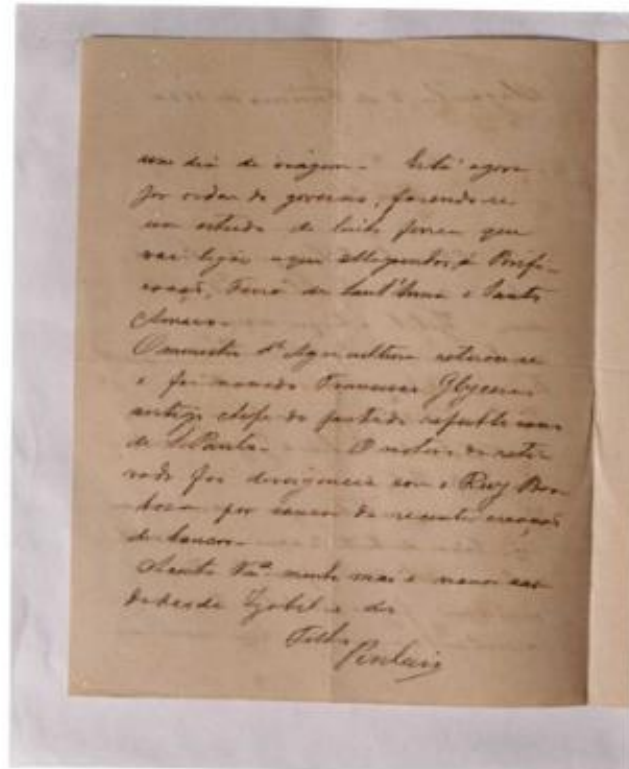 um dia de viagem – Está agora
por ordem do governo, fazendo-se
um estudo de linha ferrea que
vai ligar aqui Alagoinhas, á Purifi-
cação, Feira de Sant'Anna e Santo
Amaro.
O ministro d'Agricultura retirou-se
e foi nomeado Francisco Glycerio
antigo chefe do partido republicano
de S. Paulo. O motivo da reti-
rada foi divergencia com o Ruy Bar-
bosa por causa da recente creação
de bancos.
minha mãi e
de Izabel e do
Filho